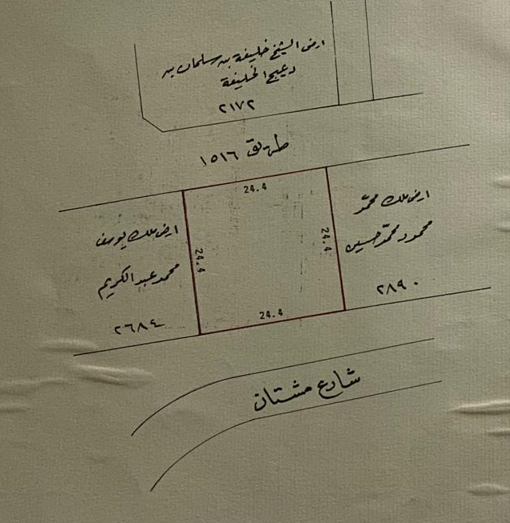 ارض الشيخ خليفة بن سلمان بن
دعيج الخليفة
٢١٧٢
طريق ١٥١٦
24.4
ارض ملك يوسف
محمد عبدالكريم
٢٦٨٤
24.4
24.4
ارض ملك محمد
محمود محمد حسين
٢٨٩٠
24.4
شارع مشتان